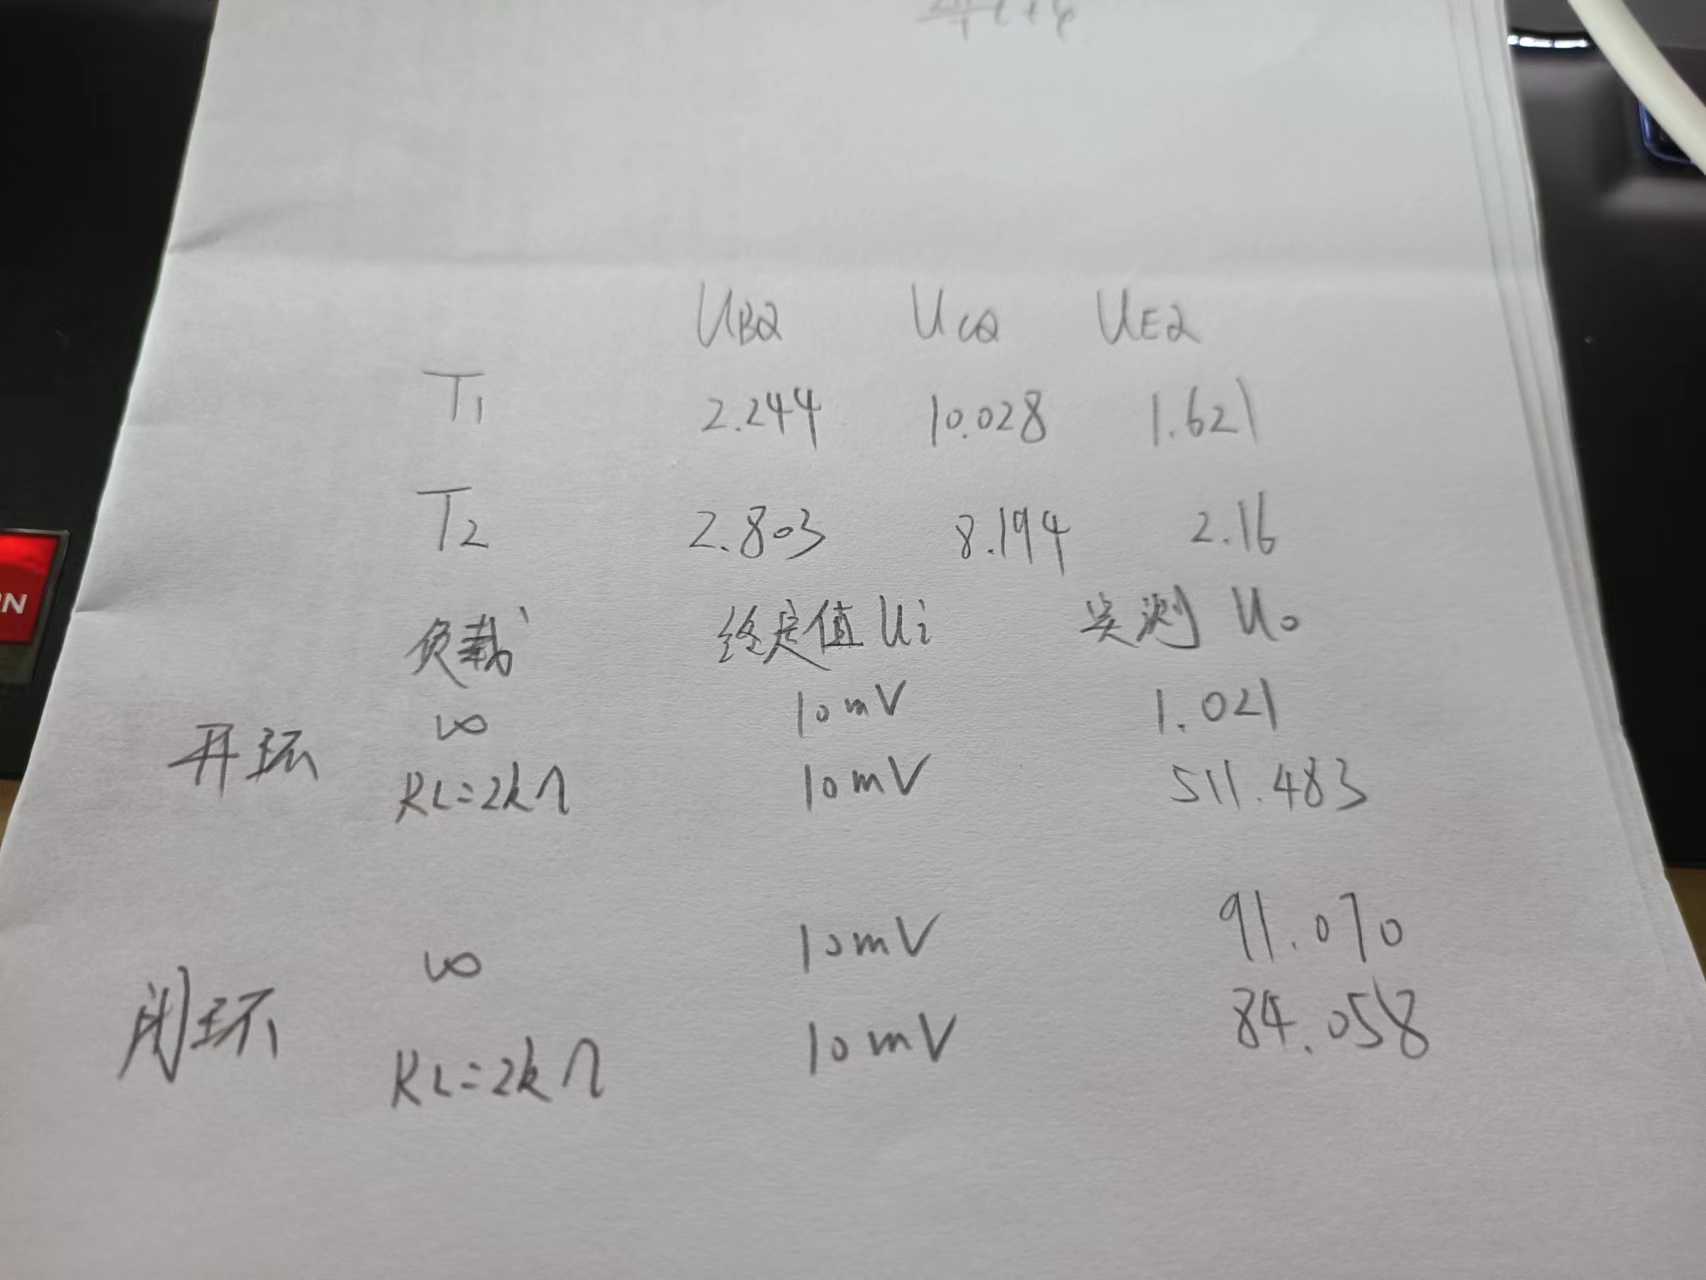 UBQ UCQ UEQ
T1 2.244 10.028 1.621
T2 2.803 8.194 2.16
负载 给定值 Ui 实测 Uo
∞ 10mV 1.021
开环
RL=2kΩ 10mV 511.483
∞ 10mV 91.070
闭环
RL=2kΩ 10mV 84.058